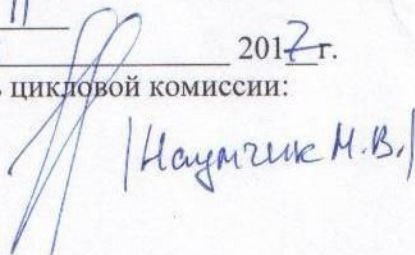 11
2017г.
ь цикловой комиссии:
/Наумчик М.В./